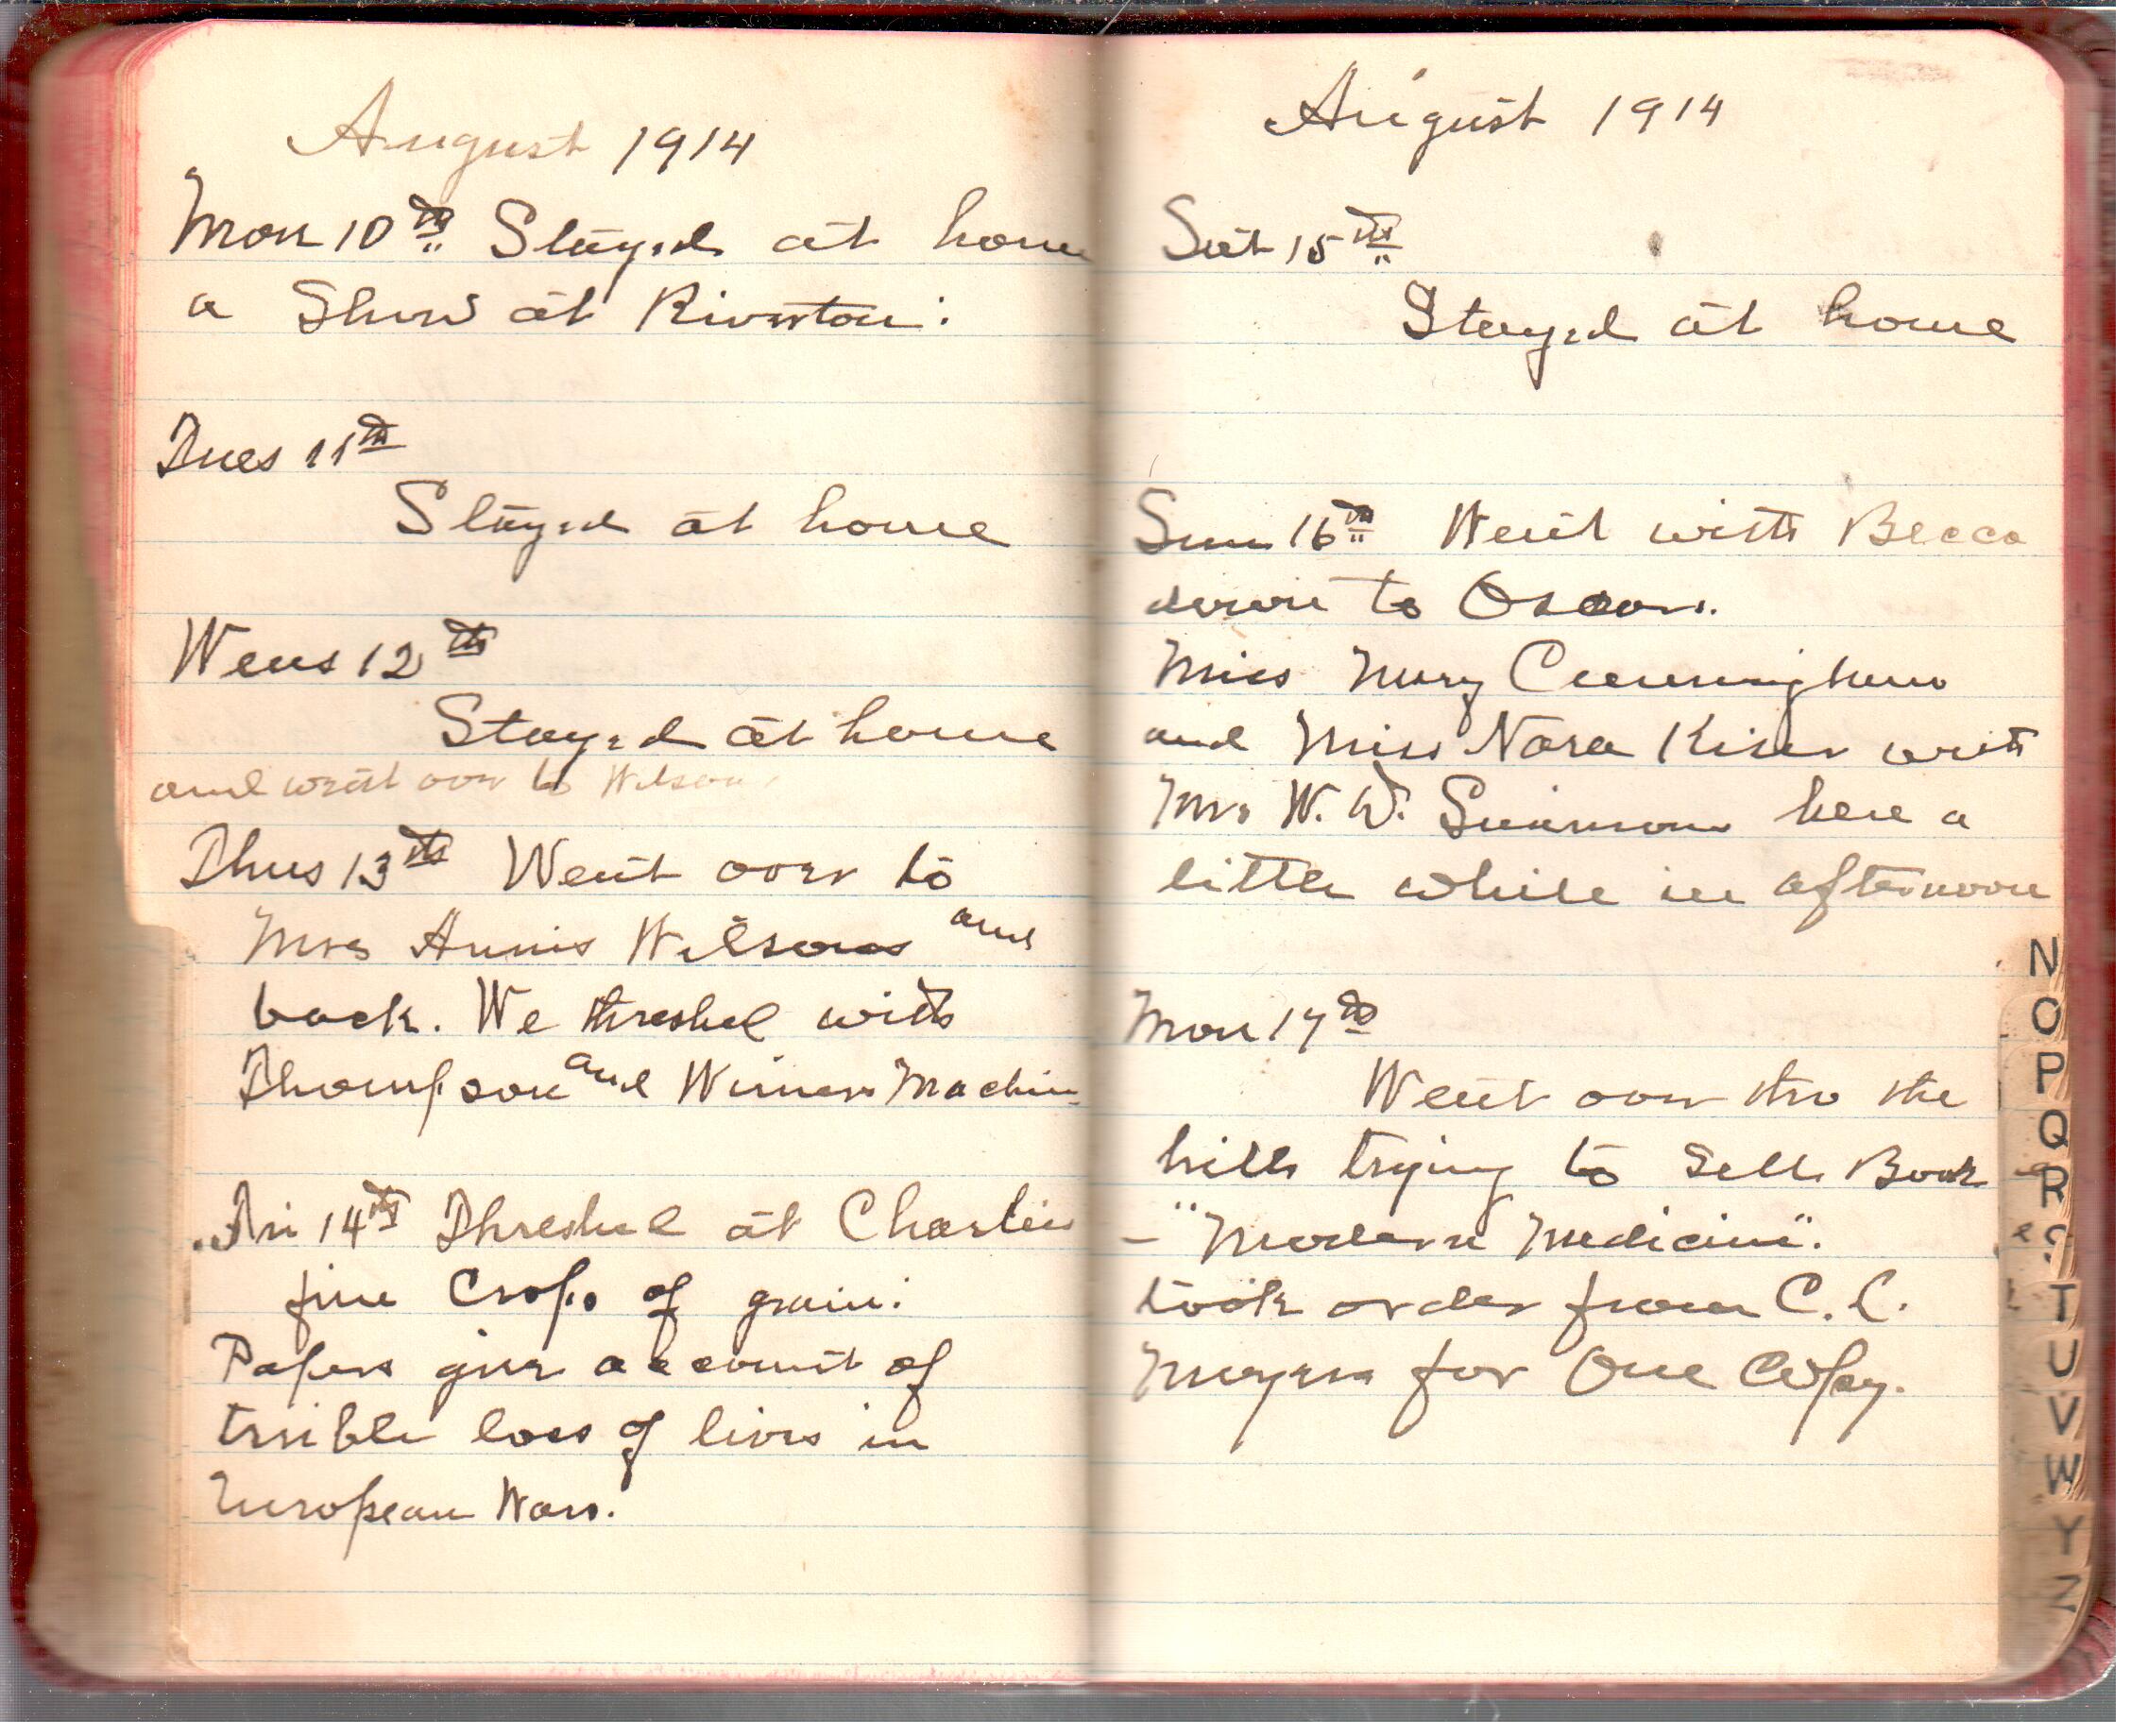 August 1914
Mon 10th Stayed at home
a Show at Riverton.
Tues 11th
Stayed at home
Wens 12th
Stayed at home
and went over to Wilsons
Thus 13th Went over to
Mrs Annis Wilsons and
back. We threshed with
Thompson and Machine
Fri 14th Threshed at Charlies
fine Crops of grain.
Papers give account of
terrible loss of lives in
European Wars.
August 1914
Sat 15th
Stayed at home
Sun 16th Went with Becca
down to Oscars.
Miss Mary Cunningham
and Miss Nora Kiser with
Mrs W. W. here a
little while in afternoon
Mon 17th
Went over thro the
hills trying to Sell Book
- "Modern Medicine".
took order from C. C.
Moyers for One Copy.
N
O
P
Q
R
S
T
U
V
W
Y
Z